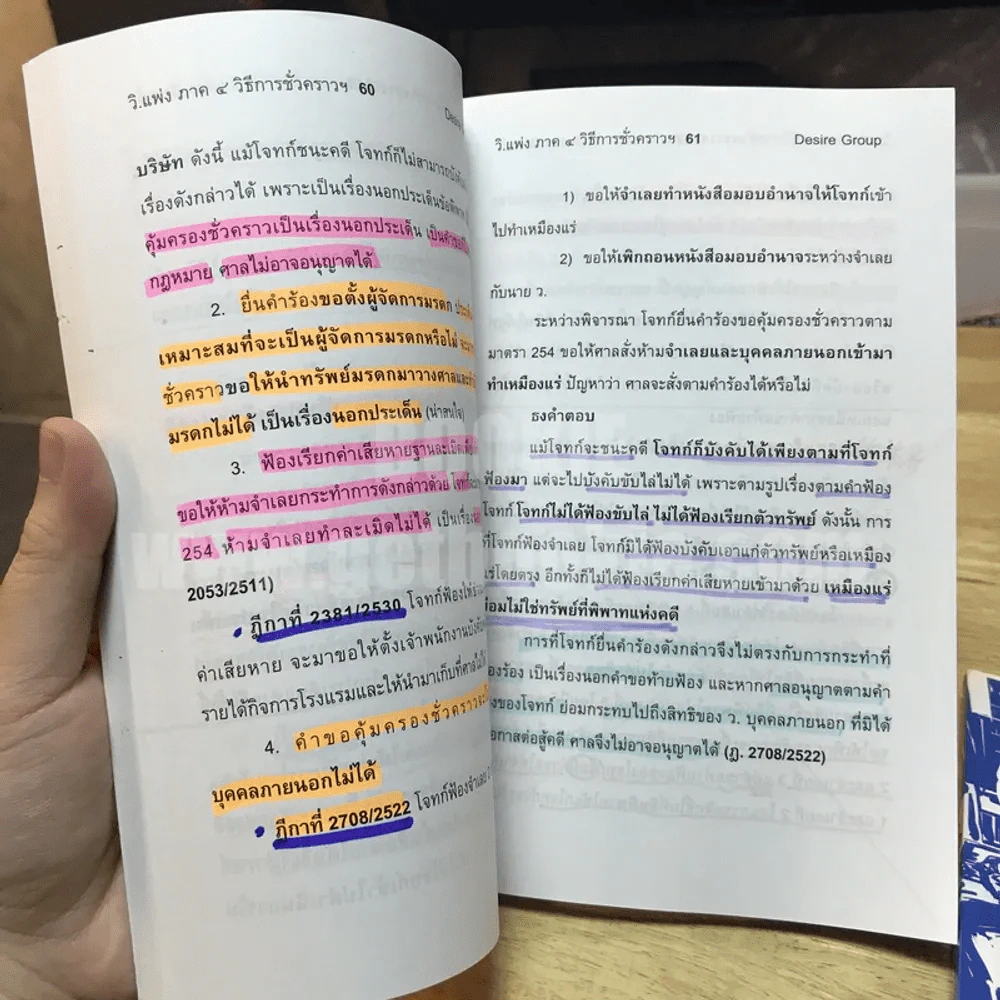 วิ.แพ่ง ภาค ๔ วิธีการชั่วคราวฯ 60
บริษัท ดังนี้ แม้โจทก์ชนะคดี โจทก์ก็ไม่สามารถบังคับ
เรื่องดังกล่าวได้ เพราะเป็นเรื่องนอกประเด็นข้อพิพาท
คุ้มครองชั่วคราวเป็นเรื่องนอกประเด็น เป็นคำขอ
กฎหมาย ศาลไม่อาจอนุญาตได้
2. ยื่นคำร้องขอตั้งผู้จัดการมรดก
เหมาะสมที่จะเป็นผู้จัดการมรดกหรือไม่
ชั่วคราวขอให้นำทรัพย์มรดกมาวางศาลและ
มรดกไม่ได้ เป็นเรื่องนอกประเด็น (น่าสนใจ)
3. ฟ้องเรียกค่าเสียหายฐานละเมิด
ขอให้ห้ามจำเลยกระทำการดังกล่าวด้วย โจทก์
254 ห้ามจำเลยทำละเมิดไม่ได้ เป็นเรื่อง
2053/2511)
• ฎีกาที่ 2381/2530 โจทก์ฟ้องให้
ค่าเสียหาย จะมาขอให้ตั้งเจ้าพนักงานบังคับ
รายได้กิจการโรงแรมและให้นำมาเก็บที่ศาล
4. คำขอคุ้มครองชั่วคราว
บุคคลภายนอกไม่ได้
• ฎีกาที่ 2708/2522 โจทก์ฟ้องจำเลย
วิ.แพ่ง ภาค ๔ วิธีการชั่วคราวฯ 61 Desire Group
1) ขอให้จำเลยทำหนังสือมอบอำนาจให้โจทก์เข้า
ไปทำเหมืองแร่
2) ขอให้เพิกถอนหนังสือมอบอำนาจระหว่างจำเลย
กับนาย ว.
ระหว่างพิจารณา โจทก์ยื่นคำร้องขอคุ้มครองชั่วคราวตาม
มาตรา 254 ขอให้ศาลสั่งห้ามจำเลยและบุคคลภายนอกเข้ามา
ทำเหมืองแร่ ปัญหาว่า ศาลจะสั่งตามคำร้องได้หรือไม่
ธงคำตอบ
แม้โจทก์จะชนะคดี โจทก์ก็บังคับได้เพียงตามที่โจทก์
ฟ้องมา แต่จะไปบังคับขับไล่ไม่ได้ เพราะตามรูปเรื่องตามคำฟ้อง
โจทก์ โจทก์ไม่ได้ฟ้องขับไล่ ไม่ได้ฟ้องเรียกตัวทรัพย์ ดังนั้น การ
ที่โจทก์ฟ้องจำเลย โจทก์มิได้ฟ้องบังคับเอาแก่ตัวทรัพย์หรือเหมือง
แร่โดยตรง อีกทั้งก็ไม่ได้ฟ้องเรียกค่าเสียหายเข้ามาด้วย เหมืองแร่
ย่อมไม่ใช่ทรัพย์ที่พิพาทแห่งคดี
การที่โจทก์ยื่นคำร้องดังกล่าวจึงไม่ตรงกับการกระทำที่
ร้อง เป็นเรื่องนอกคำขอท้ายฟ้อง และหากศาลอนุญาตตามคำ
ของโจทก์ ย่อมกระทบไปถึงสิทธิของ ว. บุคคลภายนอก ที่มิได้
ต่อสู้คดี ศาลจึงไม่อาจอนุญาตได้ (ฎ. 2708/2522)